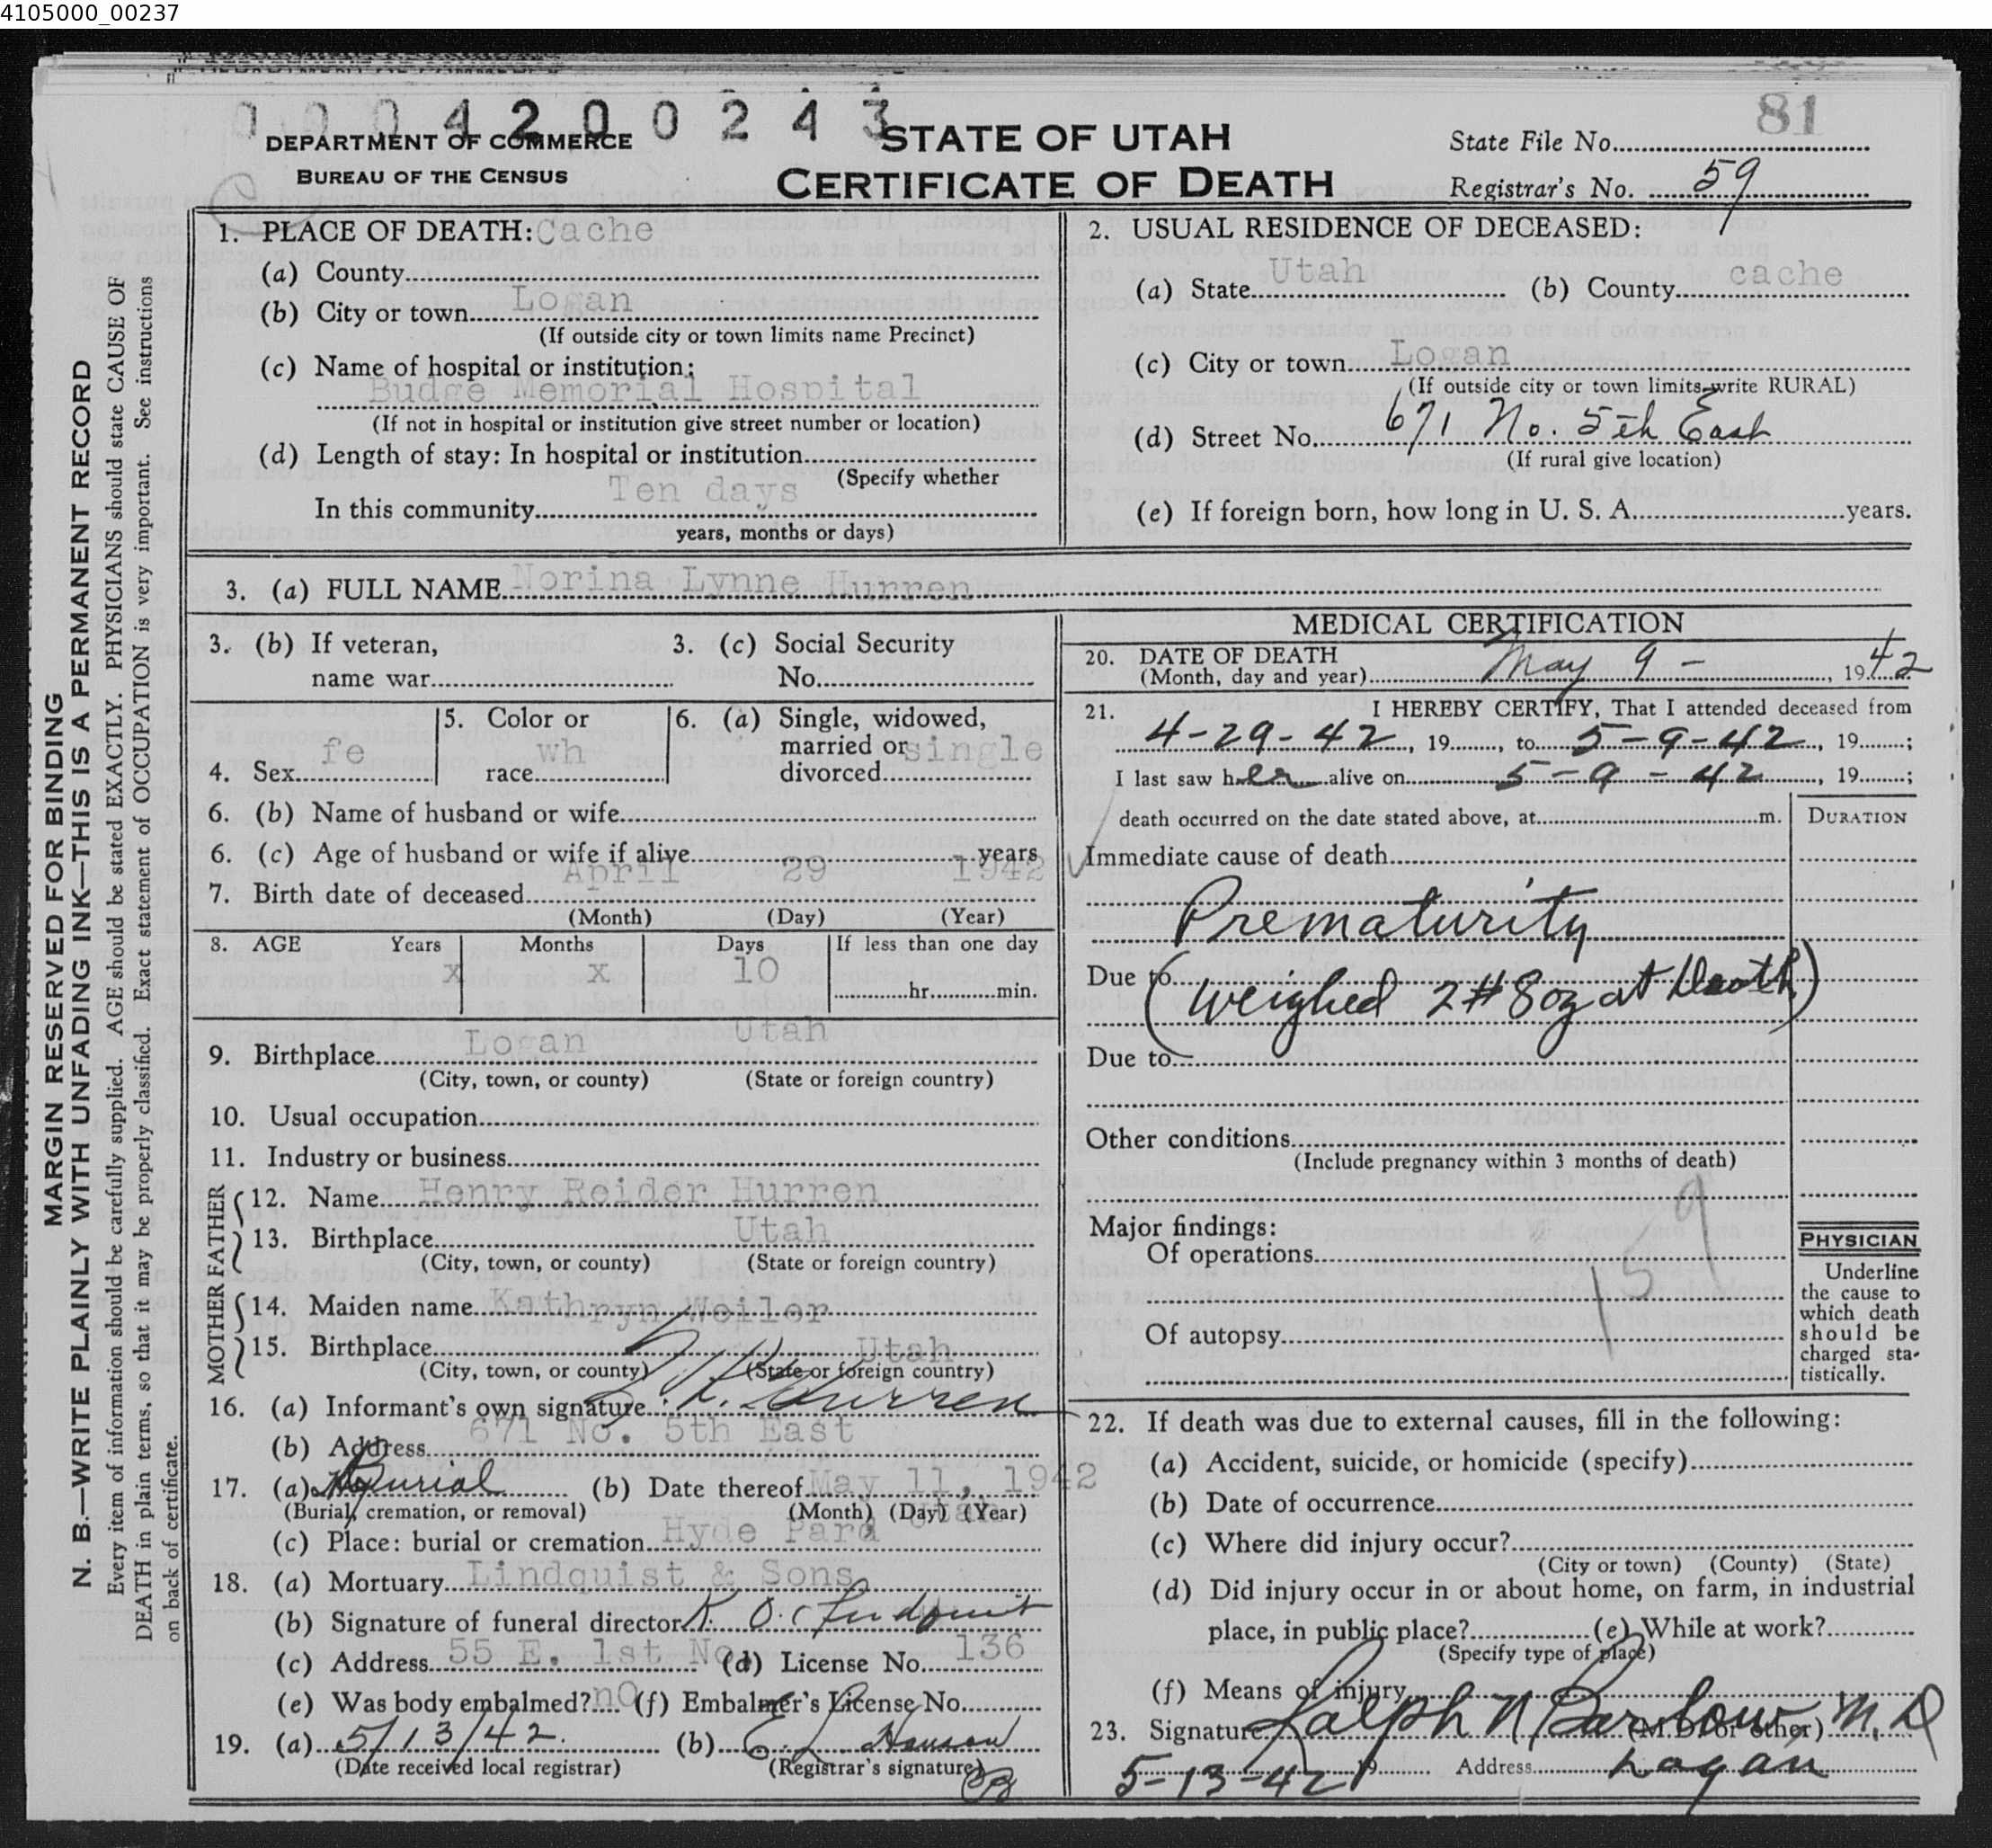 4105000_00237
0004200243
81
DEPARTMENT OF COMMERCE
BUREAU OF THE CENSUS
STATE OF UTAH
CERTIFICATE OF DEATH
State File No.
Registrar's No. 59
MARGIN RESERVED FOR BINDING
N. B.—WRITE PLAINLY WITH UNFADING INK—THIS IS A PERMANENT RECORD
Every item of information should be carefully supplied. AGE should be stated EXACTLY. PHYSICIANS should state CAUSE OF
DEATH in plain terms, so that it may be properly classified. Exact statement of OCCUPATION is very important. See instructions
on back of certificate.
1. PLACE OF DEATH: Cache
(a) County
(b) City or town Logan
(If outside city or town limits name Precinct)
(c) Name of hospital or institution:
Budge Memorial Hospital
(If not in hospital or institution give street number or location)
(d) Length of stay: In hospital or institution
(Specify whether
In this community Ten days
years, months or days)
2. USUAL RESIDENCE OF DECEASED:
(a) State Utah (b) County cache
(c) City or town Logan
(If outside city or town limits write RURAL)
(d) Street No. 671 No. 5th East
(If rural give location)
(e) If foreign born, how long in U. S. A. years.
3. (a) FULL NAME Norina Lynne Hurren
3. (b) If veteran,
name war
3. (c) Social Security
No.
4. Sex fe
5. Color or
race wh
6. (a) Single, widowed,
married or single
divorced
6. (b) Name of husband or wife
6. (c) Age of husband or wife if alive years
7. Birth date of deceased April 29 1942
(Month) (Day) (Year)
8. AGE Years Months Days If less than one day
x x 10 hr. min.
9. Birthplace Logan Utah
(City, town, or county) (State or foreign country)
10. Usual occupation
11. Industry or business
FATHER
12. Name Henry Reider Hurren
13. Birthplace Utah
(City, town, or county) (State or foreign country)
MOTHER
14. Maiden name Kathryn Weiler
15. Birthplace Utah
(City, town, or county) (State or foreign country)
16. (a) Informant's own signature Hurren
(b) Address 671 No. 5th East
17. (a) Burial (b) Date thereof May 11, 1942
(Burial, cremation, or removal) (Month) (Day) (Year)
(c) Place: burial or cremation Hyde Park Utah
18. (a) Mortuary Lindquist & Sons
(b) Signature of funeral director R. O. Lindquist
(c) Address 55 E. 1st No. (d) License No. 136
(e) Was body embalmed? no (f) Embalmer's License No.
19. (a) 5/13/42. (b) E. L. Hanson
(Date received local registrar) (Registrar's signature)
MEDICAL CERTIFICATION
20. DATE OF DEATH
(Month, day and year) May 9 - , 1942
21. I HEREBY CERTIFY, That I attended deceased from
4-29-42, 19 , to 5-9-42, 19 ;
I last saw her alive on 5-9-42, 19 ;
death occurred on the date stated above, at m.
DURATION
Immediate cause of death
Prematurity
Due to
(Weighed 2# 8oz at Death)
Due to
Other conditions
(Include pregnancy within 3 months of death)
Major findings:
Of operations
159
Of autopsy
PHYSICIAN
Underline
the cause to
which death
should be
charged sta-
tistically.
22. If death was due to external causes, fill in the following:
(a) Accident, suicide, or homicide (specify)
(b) Date of occurrence
(c) Where did injury occur?
(City or town) (County) (State)
(d) Did injury occur in or about home, on farm, in industrial
place, in public place? (e) While at work?
(Specify type of place)
(f) Means of injury
23. Signature Ralph N Barlow M.D
(M. D. or other)
5-13-42 19 Address Logan